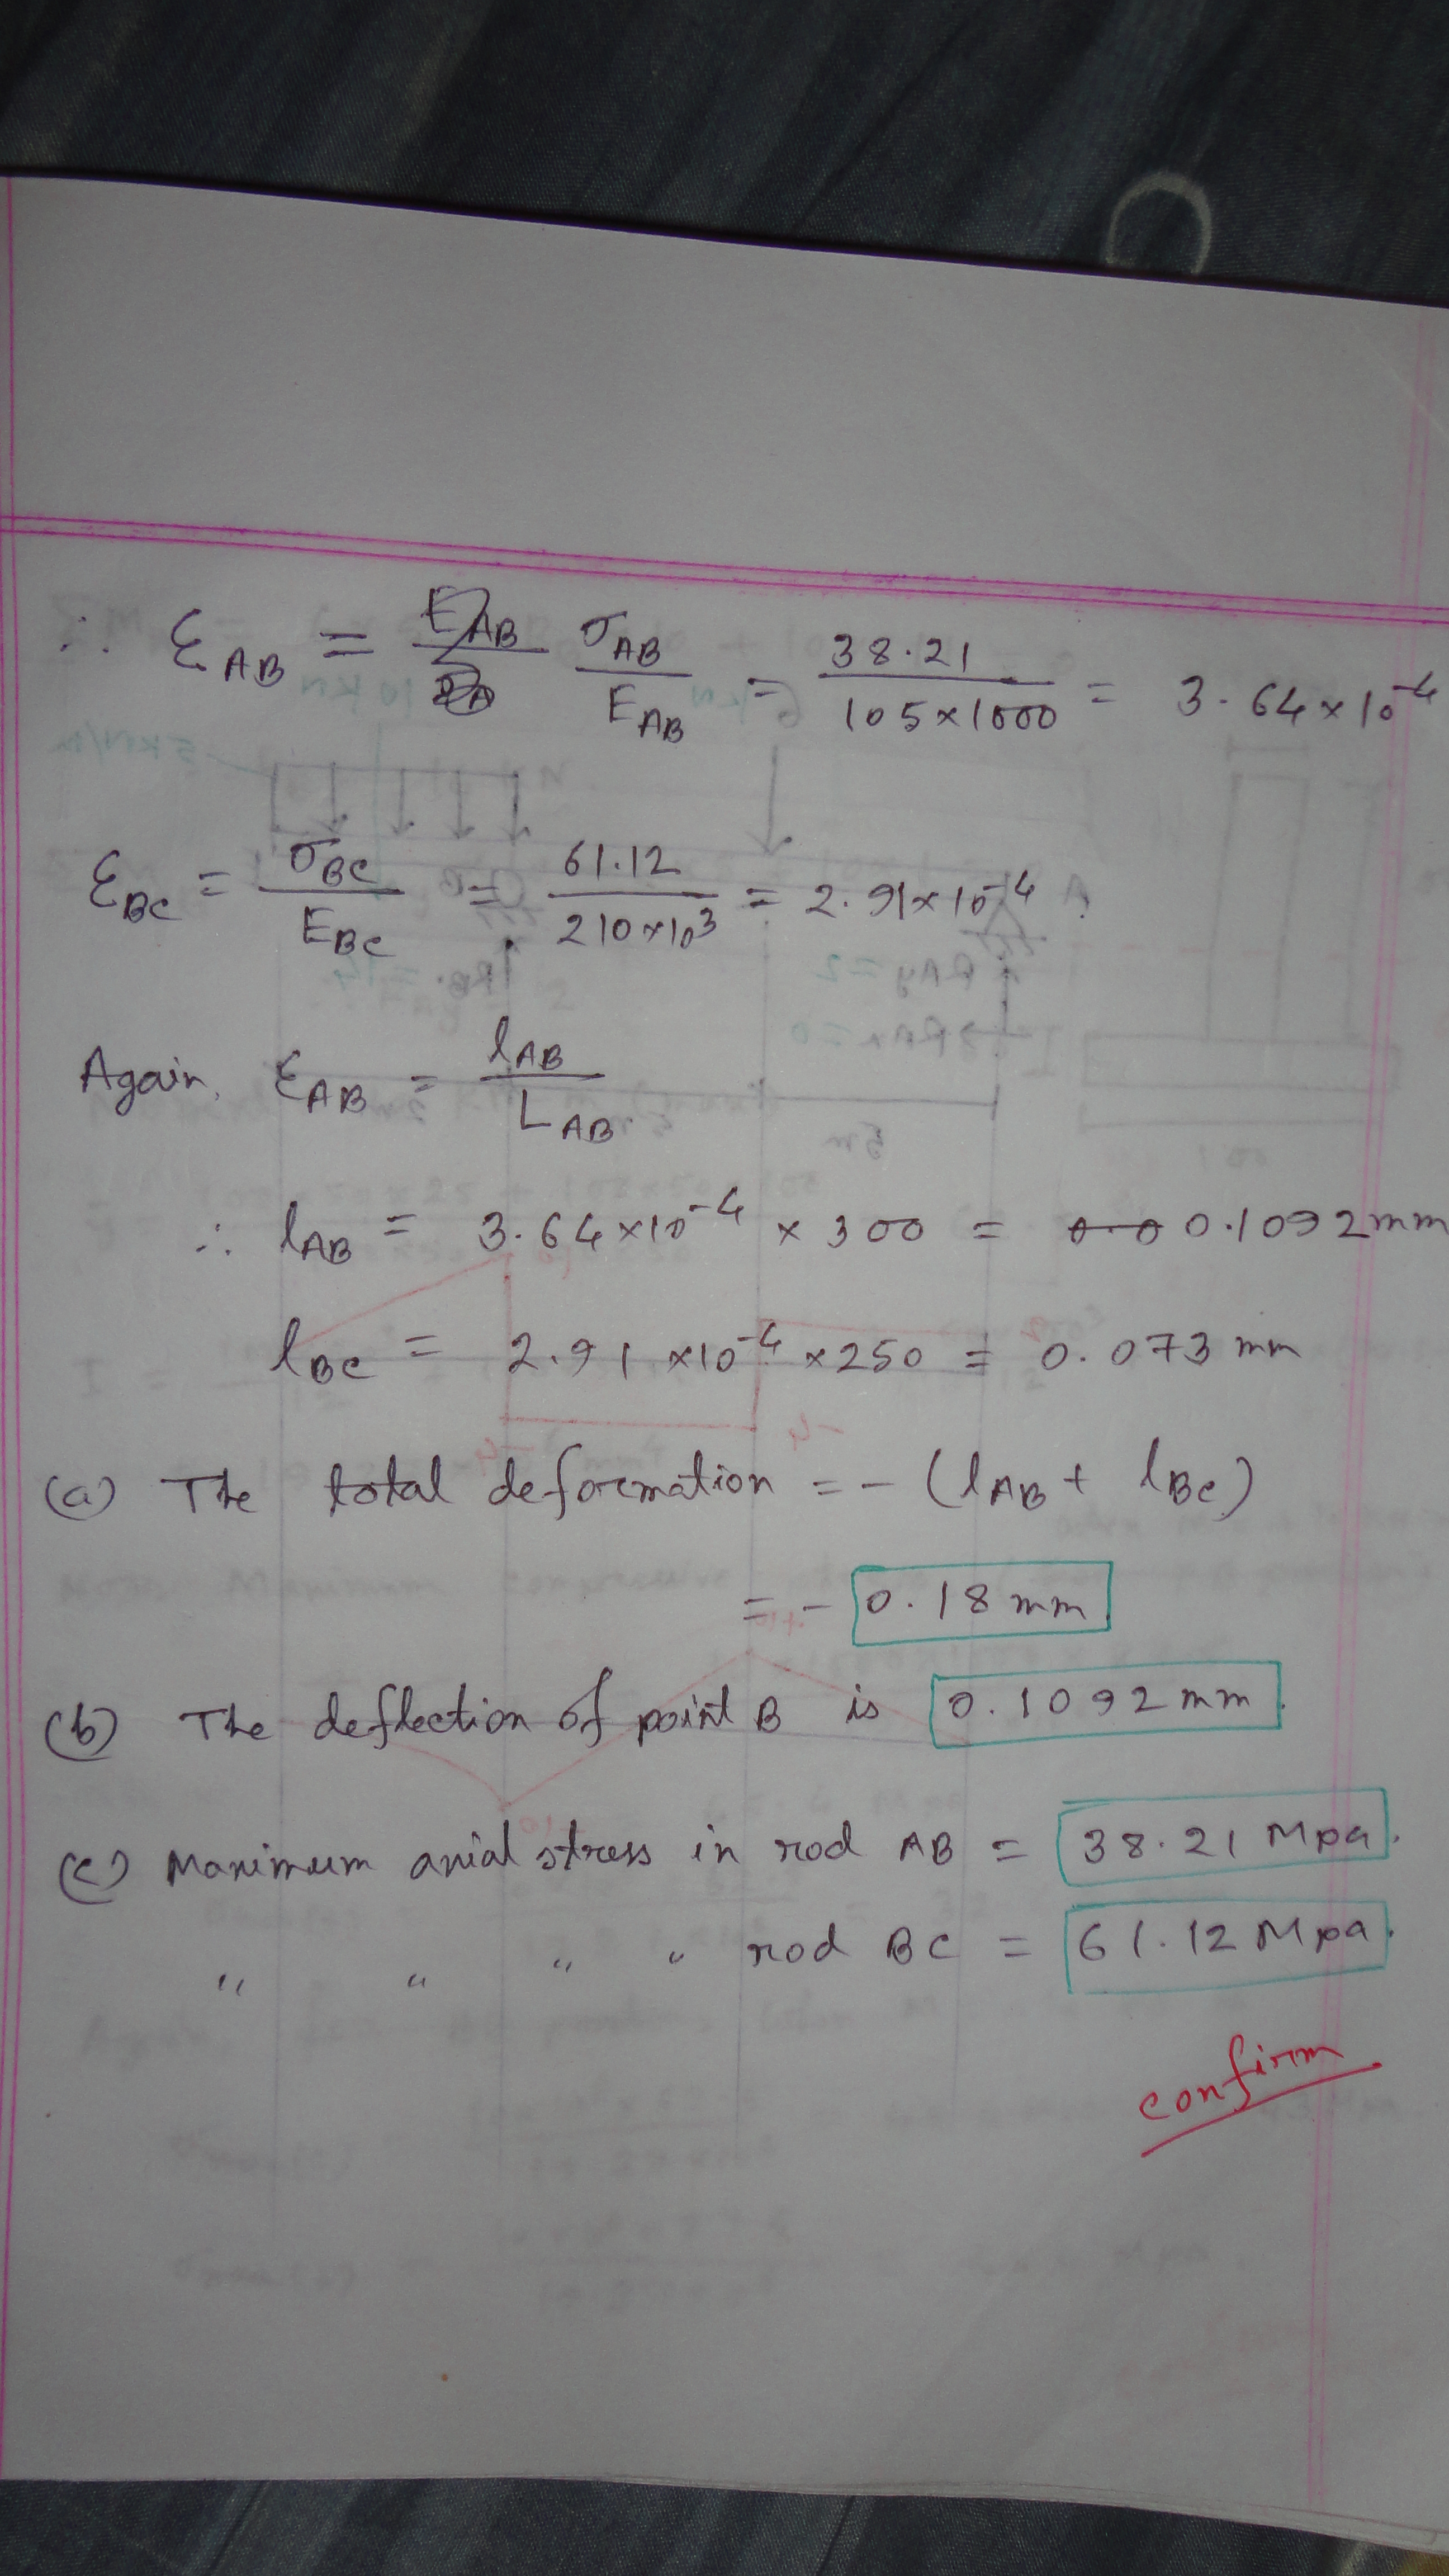 ∴ ε_AB = σ_AB / E_AB = 38.21 / 105×1000 = 3.64×10^-4
ε_BC = σ_BC / E_BC = 61.12 / 210×10^3 = 2.91×10^-4
Again, ε_AB = l_AB / L_AB
∴ l_AB = 3.64×10^-4 × 300 = 0.1092 mm
l_BC = 2.91×10^-4 × 250 = 0.073 mm
(a) The total deformation = - (l_AB + l_BC)
= - 0.18 mm
(b) The deflection of point B is 0.1092 mm.
(c) Maximum axial stress in rod AB = 38.21 Mpa.
" " " " rod BC = 61.12 Mpa.
confirm